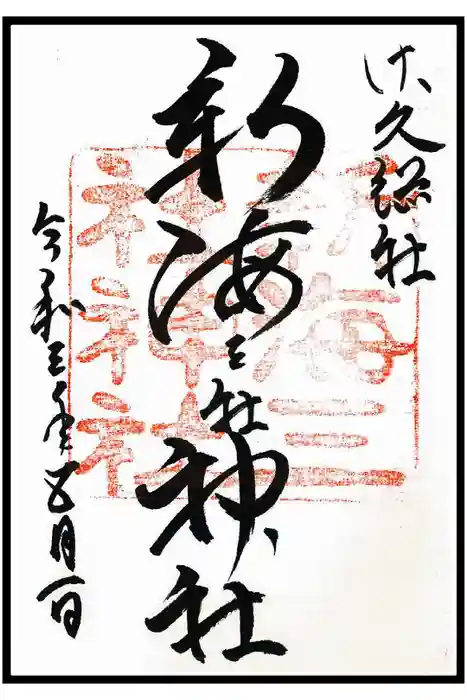 佐久総社
新海三社神社
令和三年五月一日
新海三社神社